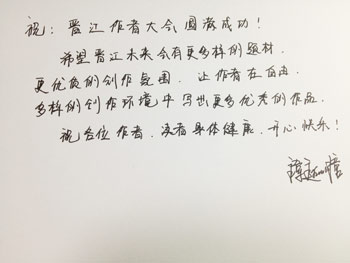 祝：晋江作者大会圆满成功！
希望晋江未来会有更多样的题材、
更优良的创作氛围，让作者在自由、
多样的创作环境中写出更多优秀的作品。
祝各位作者、读者身体健康、开心快乐！